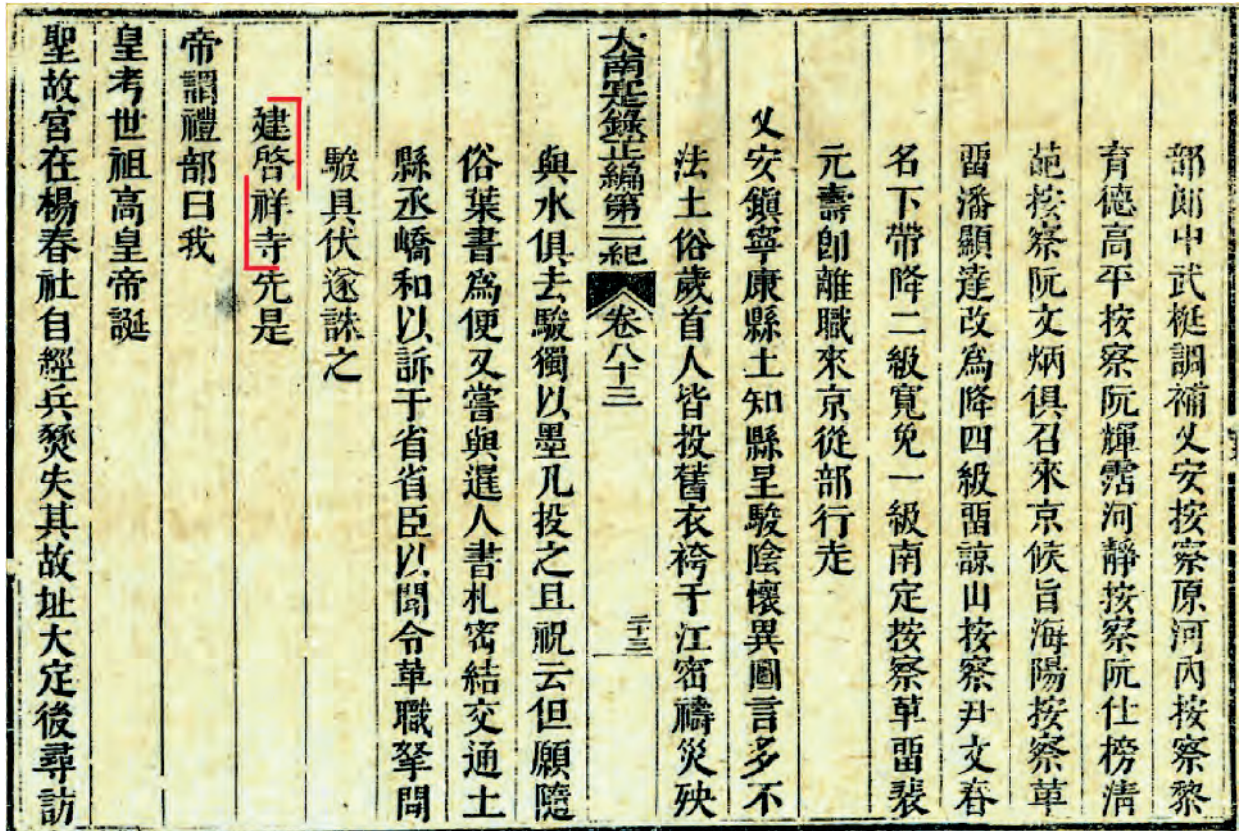 部郎中武梃調補乂安按察原河內按察黎
育德高平按察阮輝霑河靜按察阮仕榜清
葩按察阮文炳俱召來京候旨海陽按察革
畱潘顯達改爲降四級畱諒山按察尹文春
名下帶降二級寬免一級南定按察革畱裴
元壽卽離職來京從部行走
乂安鎮寧康縣土知縣呈駿陰懷異圖言多不
法土俗歲首人皆投舊衣袴于江密禱災殃
大南寔錄正編第二紀 卷八十三 二十三
與水俱去駿獨以墨凡投之且祝云但願隨
俗葉書爲便又嘗與暹人書札密結交通土
縣丞嶠和以訴于省省臣以聞令革職拏問
駿具伏遂誅之
建啓祥寺先是
帝謂禮部曰我
皇考世祖高皇帝誕
聖故宮在楊春社自經兵燹失其故址大定後尋訪